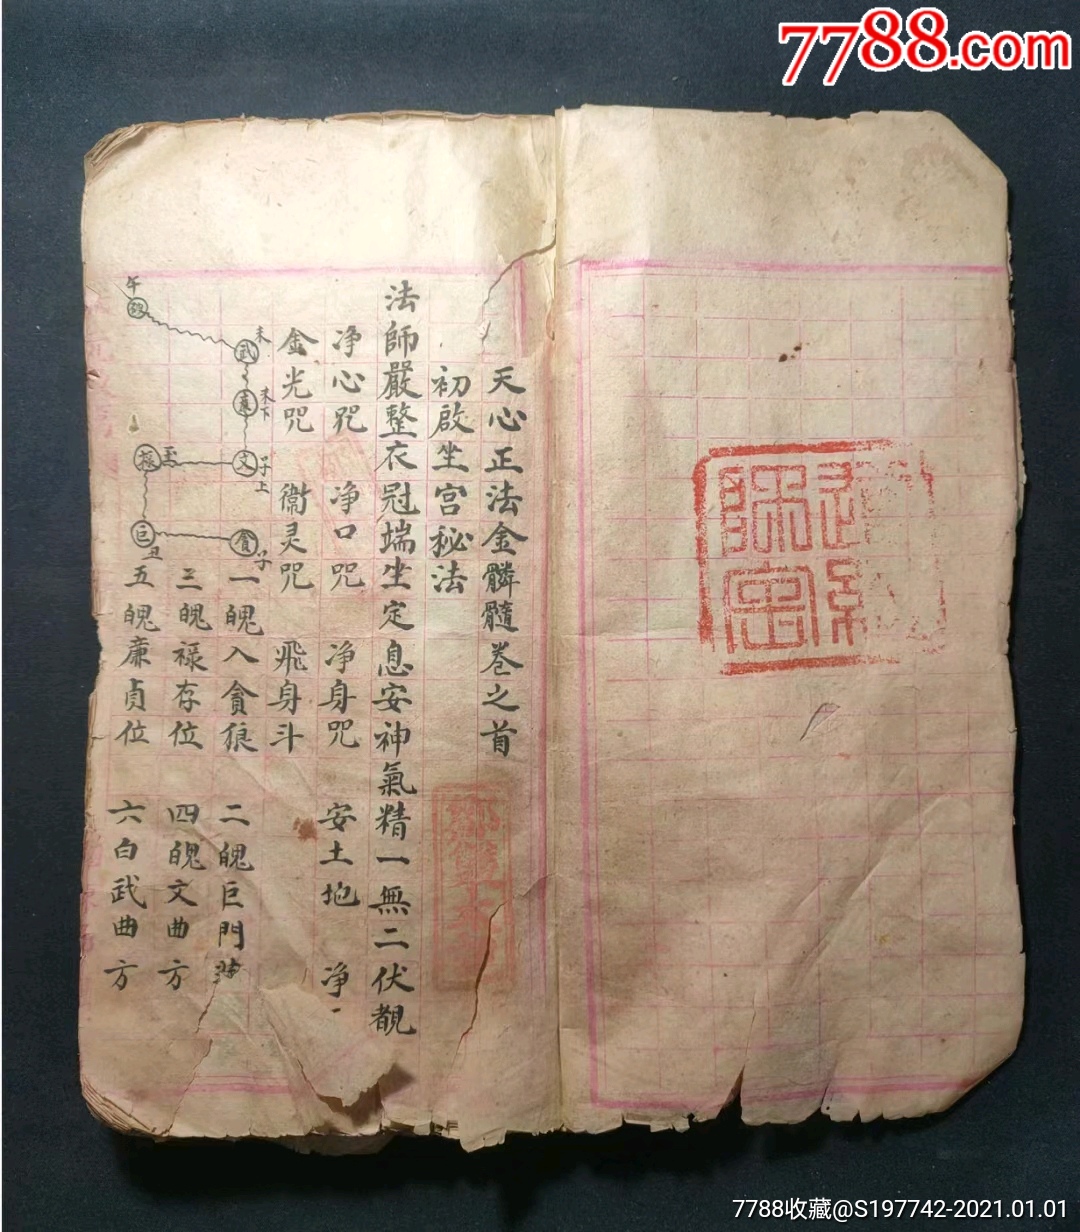 7788.com
天心正法金髓卷之首
初啟坐宫秘法
法師嚴整衣冠端坐定息安神氣精一無二伏覩
净心咒 净口咒 净身咒 安土地 净
金光咒 衛灵咒 飛身斗
午
未 武
未下 廉
文 子上
禄
巨 丑
貪 子
一魄入貪狼 二魄巨門
三魄禄存位 四魄文曲方
五魄廉貞位 六白武曲方
7788收藏@S197742-2021.01.01